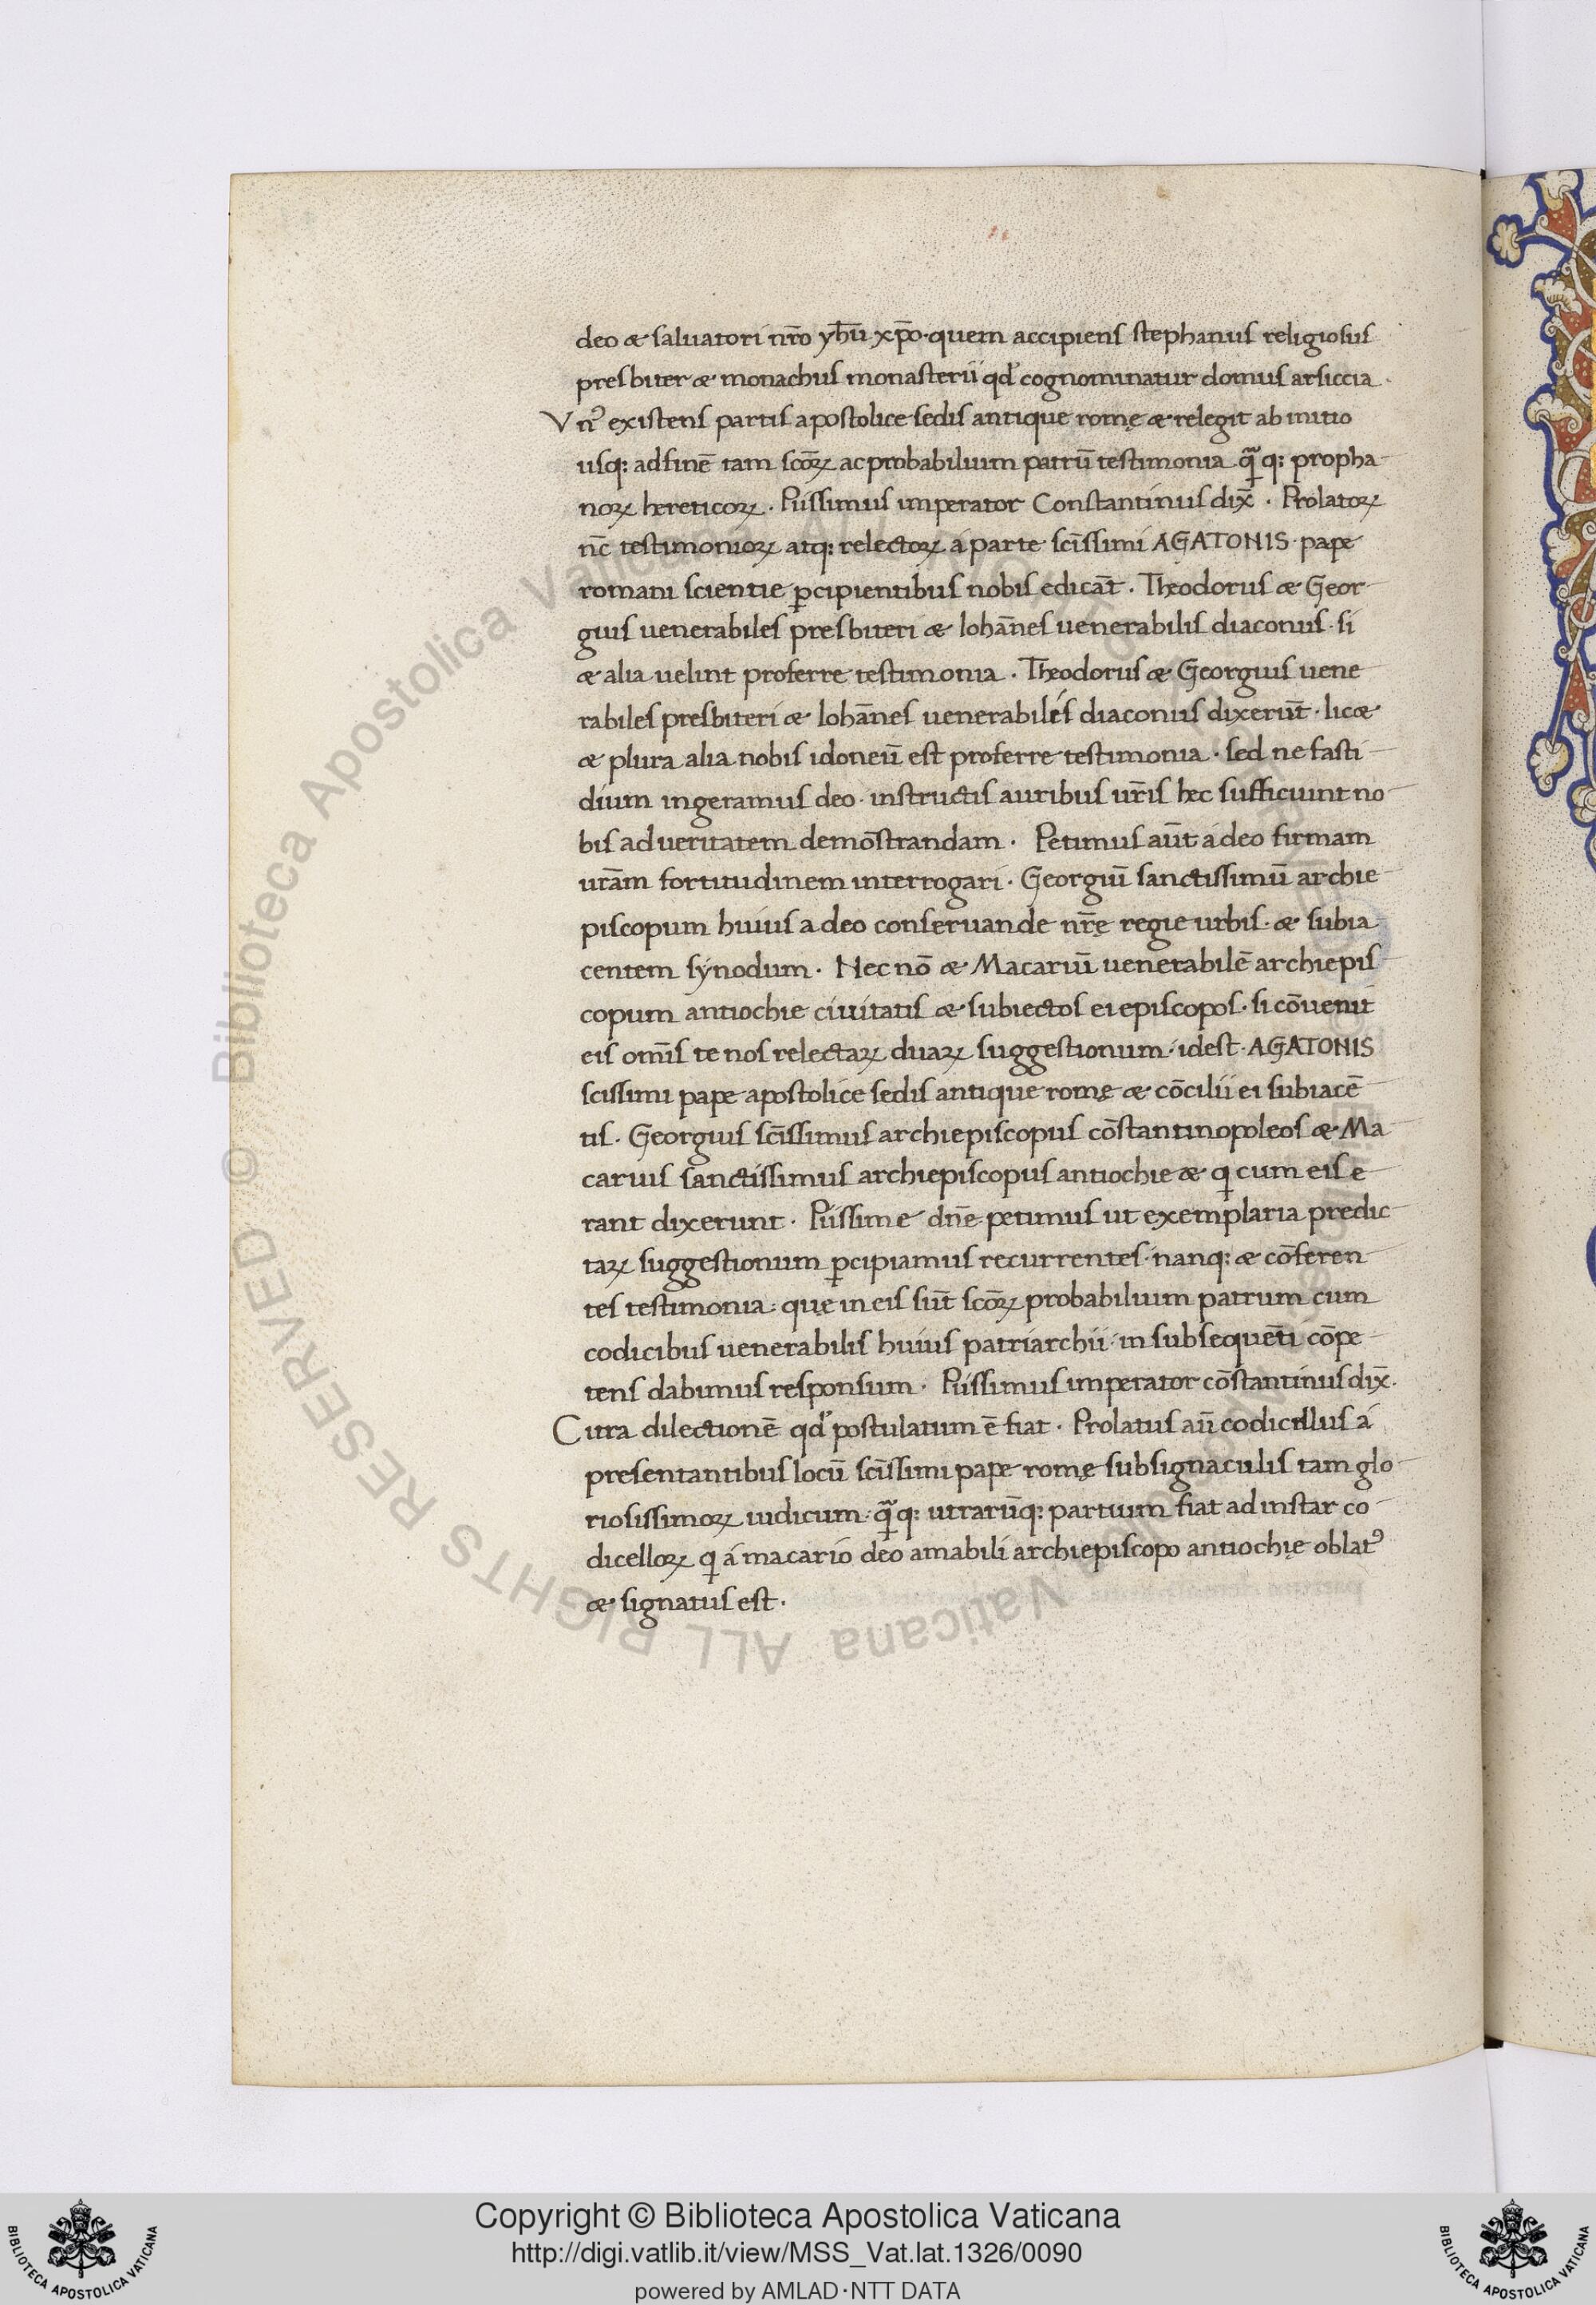 deo & saluatori nr̄o yhū xp̄o · quem accipiens stephanus religiosus
presbiter & monachus monasterii qd̕ cognominatur domus arsiccia ·
Vnꝰ existens partis apostolice sedis antique romę & relegit ab initio
usq: ad finē tam scōꝝ ac probabilium patrū testimonia q̄ꝗ: propha
noꝝ hereticoꝝ · Piissimus imperator Constantinus dix̄ · Prolatoꝝ
nc̄ testimonioꝝ atq: relectoꝝ á parte scīssimi AGATONIS · pape
romani scientie ꝑcipientibus nobis edicāt · Theodorus & Geor
gius uenerabiles presbiteri & Iohānes uenerabilis diaconus · si
& alia uelint proferre testimonia · Theodorus & Georgius uene
rabiles presbiteri & Iohānes uenerabilés diaconus dixerūt · lic&
& plura alia nobis idoneū est proferre testimonia · sed ne fasti
dium ingeramus deo · instructis auribus ur̄is hec sufficiunt no
bis ad ueritatem demōstrandam · Petimus aūt á deo firmam
urām fortitudinem interrogari · Georgiū sanctissimū archie
piscopum huius a deo conseruande nr̄ę regie urbis · & subia
centem synodum · Nec nō & Macariū uenerabilē archiepis
copum antiochie ciuitatis & subiectos ei episcopos · si cōuenit
eis omīs te nos relectaꝝ duaꝝ suggestionum · idest · AGATONIS
scissimi pape apostolice sedis antique romę & cōcilii ei subiacē
tis · Georgius scīssimus archiepiscopus cōstantinopoleos & Ma
carius sanctissimus archiepiscopus antiochie & ꝗ cum eis e
rant dixerunt · Piissime dn̄e petimus ut exemplaria predic
taꝝ suggestionum ꝑcipiamus recurrentes · nanq: & cōferen
tes testimonia · quę in eis sūt scōꝝ probabilium patrum cum
codicibus uenerabilis huius patriarchii · in subsequēti cōpe
tens dabimus responsum · Piissimus imperator cōstantinus dix̄ ·
Citra dilectionē qd̕ postulatum ē fiat · Prolatus aū codicillus á
presentantibus locū scīssimi pape romę subsignaculis tam glo
riosissimoꝝ iudicum · q̄ꝗ: utrarūq: partium fiat ad instar co
dicelloꝝ ꝗ á macario deo amabili archiepiscopo antiochię oblatꝰ
& signatus est ·
© Biblioteca Apostolica Vaticana ALL RIGHTS RESERVED
Copyright © Biblioteca Apostolica Vaticana
http://digi.vatlib.it/view/MSS_Vat.lat.1326/0090
powered by AMLAD·NTT DATA
BIBLIOTECA APOSTOLICA VATICANA
BIBLIOTECA APOSTOLICA VATICANA